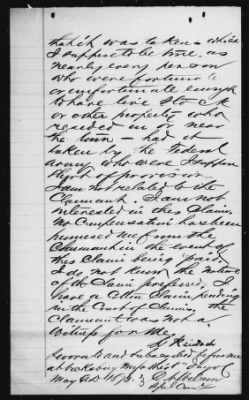 that it was taken which
I suppose to be true, as
nearly every person
who were fortunate
or unfortunate enough
to have live stock
or other property who
resided in or near
the town — had it
taken by the Federal
army who were I suppose
short of provision
I am not related to the
Claimant. I am not
interested in this Claim.
No Compensation has been
promised me from the
Claimant in the event of
this Claim being paid.
I do not know the nature
of the Claim professed. I
have a Cotton Claim pending
in the Court of Claims, the
Claimant was not a
witness for me.
Sworn to and subscribed before me
at Vicksburg Miss this
May 1873